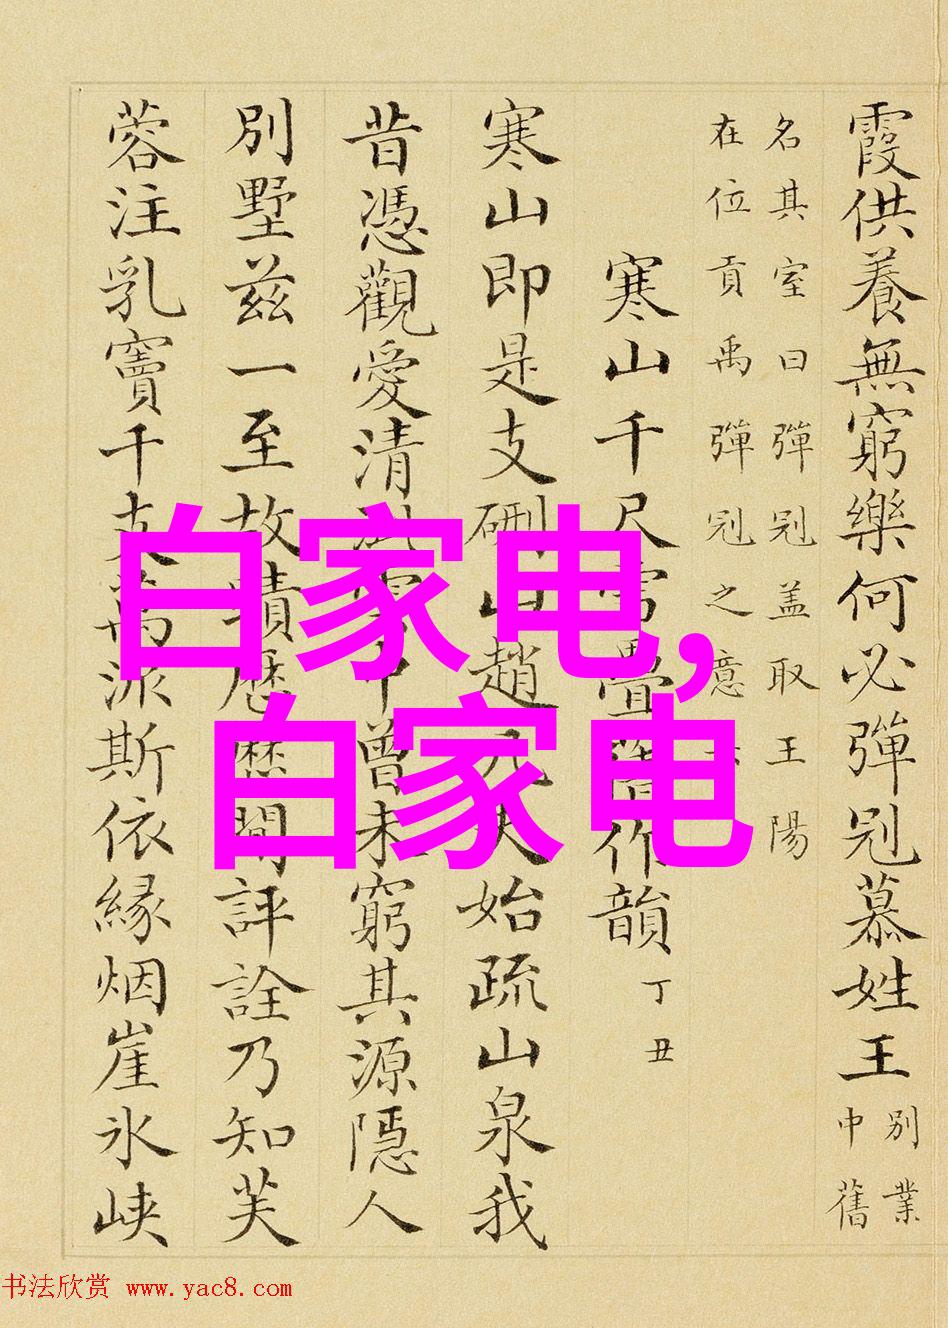 霞供養無窮樂何必彈冠慕姓王
別業
中舊
名其室曰彈冠盖取王陽
在位貢禹彈冠之意
寒山千尺雪疊作韻
丁丑
寒山即是支硎山趙凡夫始疏山泉我
昔憑觀愛清曾未窮其源隱人
別墅兹一至故蹟歷歷閒評詮乃知芙
蓉注乳竇千支萬派斯依緣烟崖氷峡
白家电,
白家电
书法欣赏 www.yac8.com